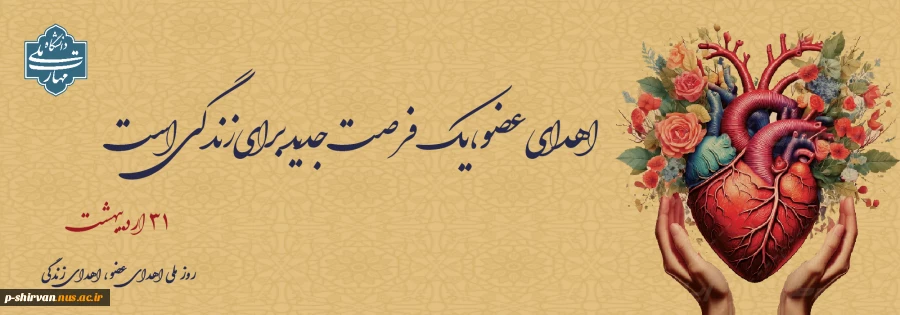 دانشگاه ملی مهارت
اهدای عضو، یک فرصت جدید برای زندگی است
۳۱ اردیبهشت
روز ملی اهدای عضو، اهدای زندگی
p-shirvan.nus.ac.ir